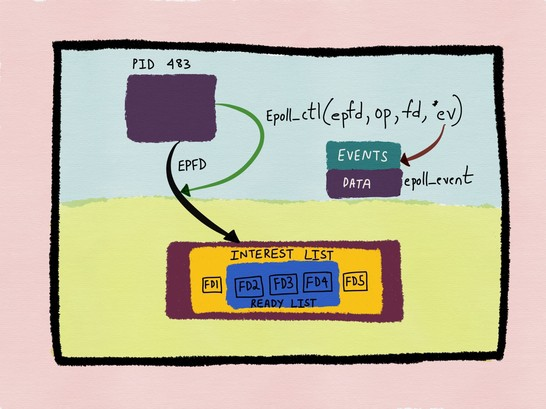 PID 483
Epoll_ctl(epfd, op, fd, *ev)
EPFD
EVENTS
DATA
epoll_event
INTEREST LIST
FD1 FD2 FD3 FD4 FD5
READY LIST